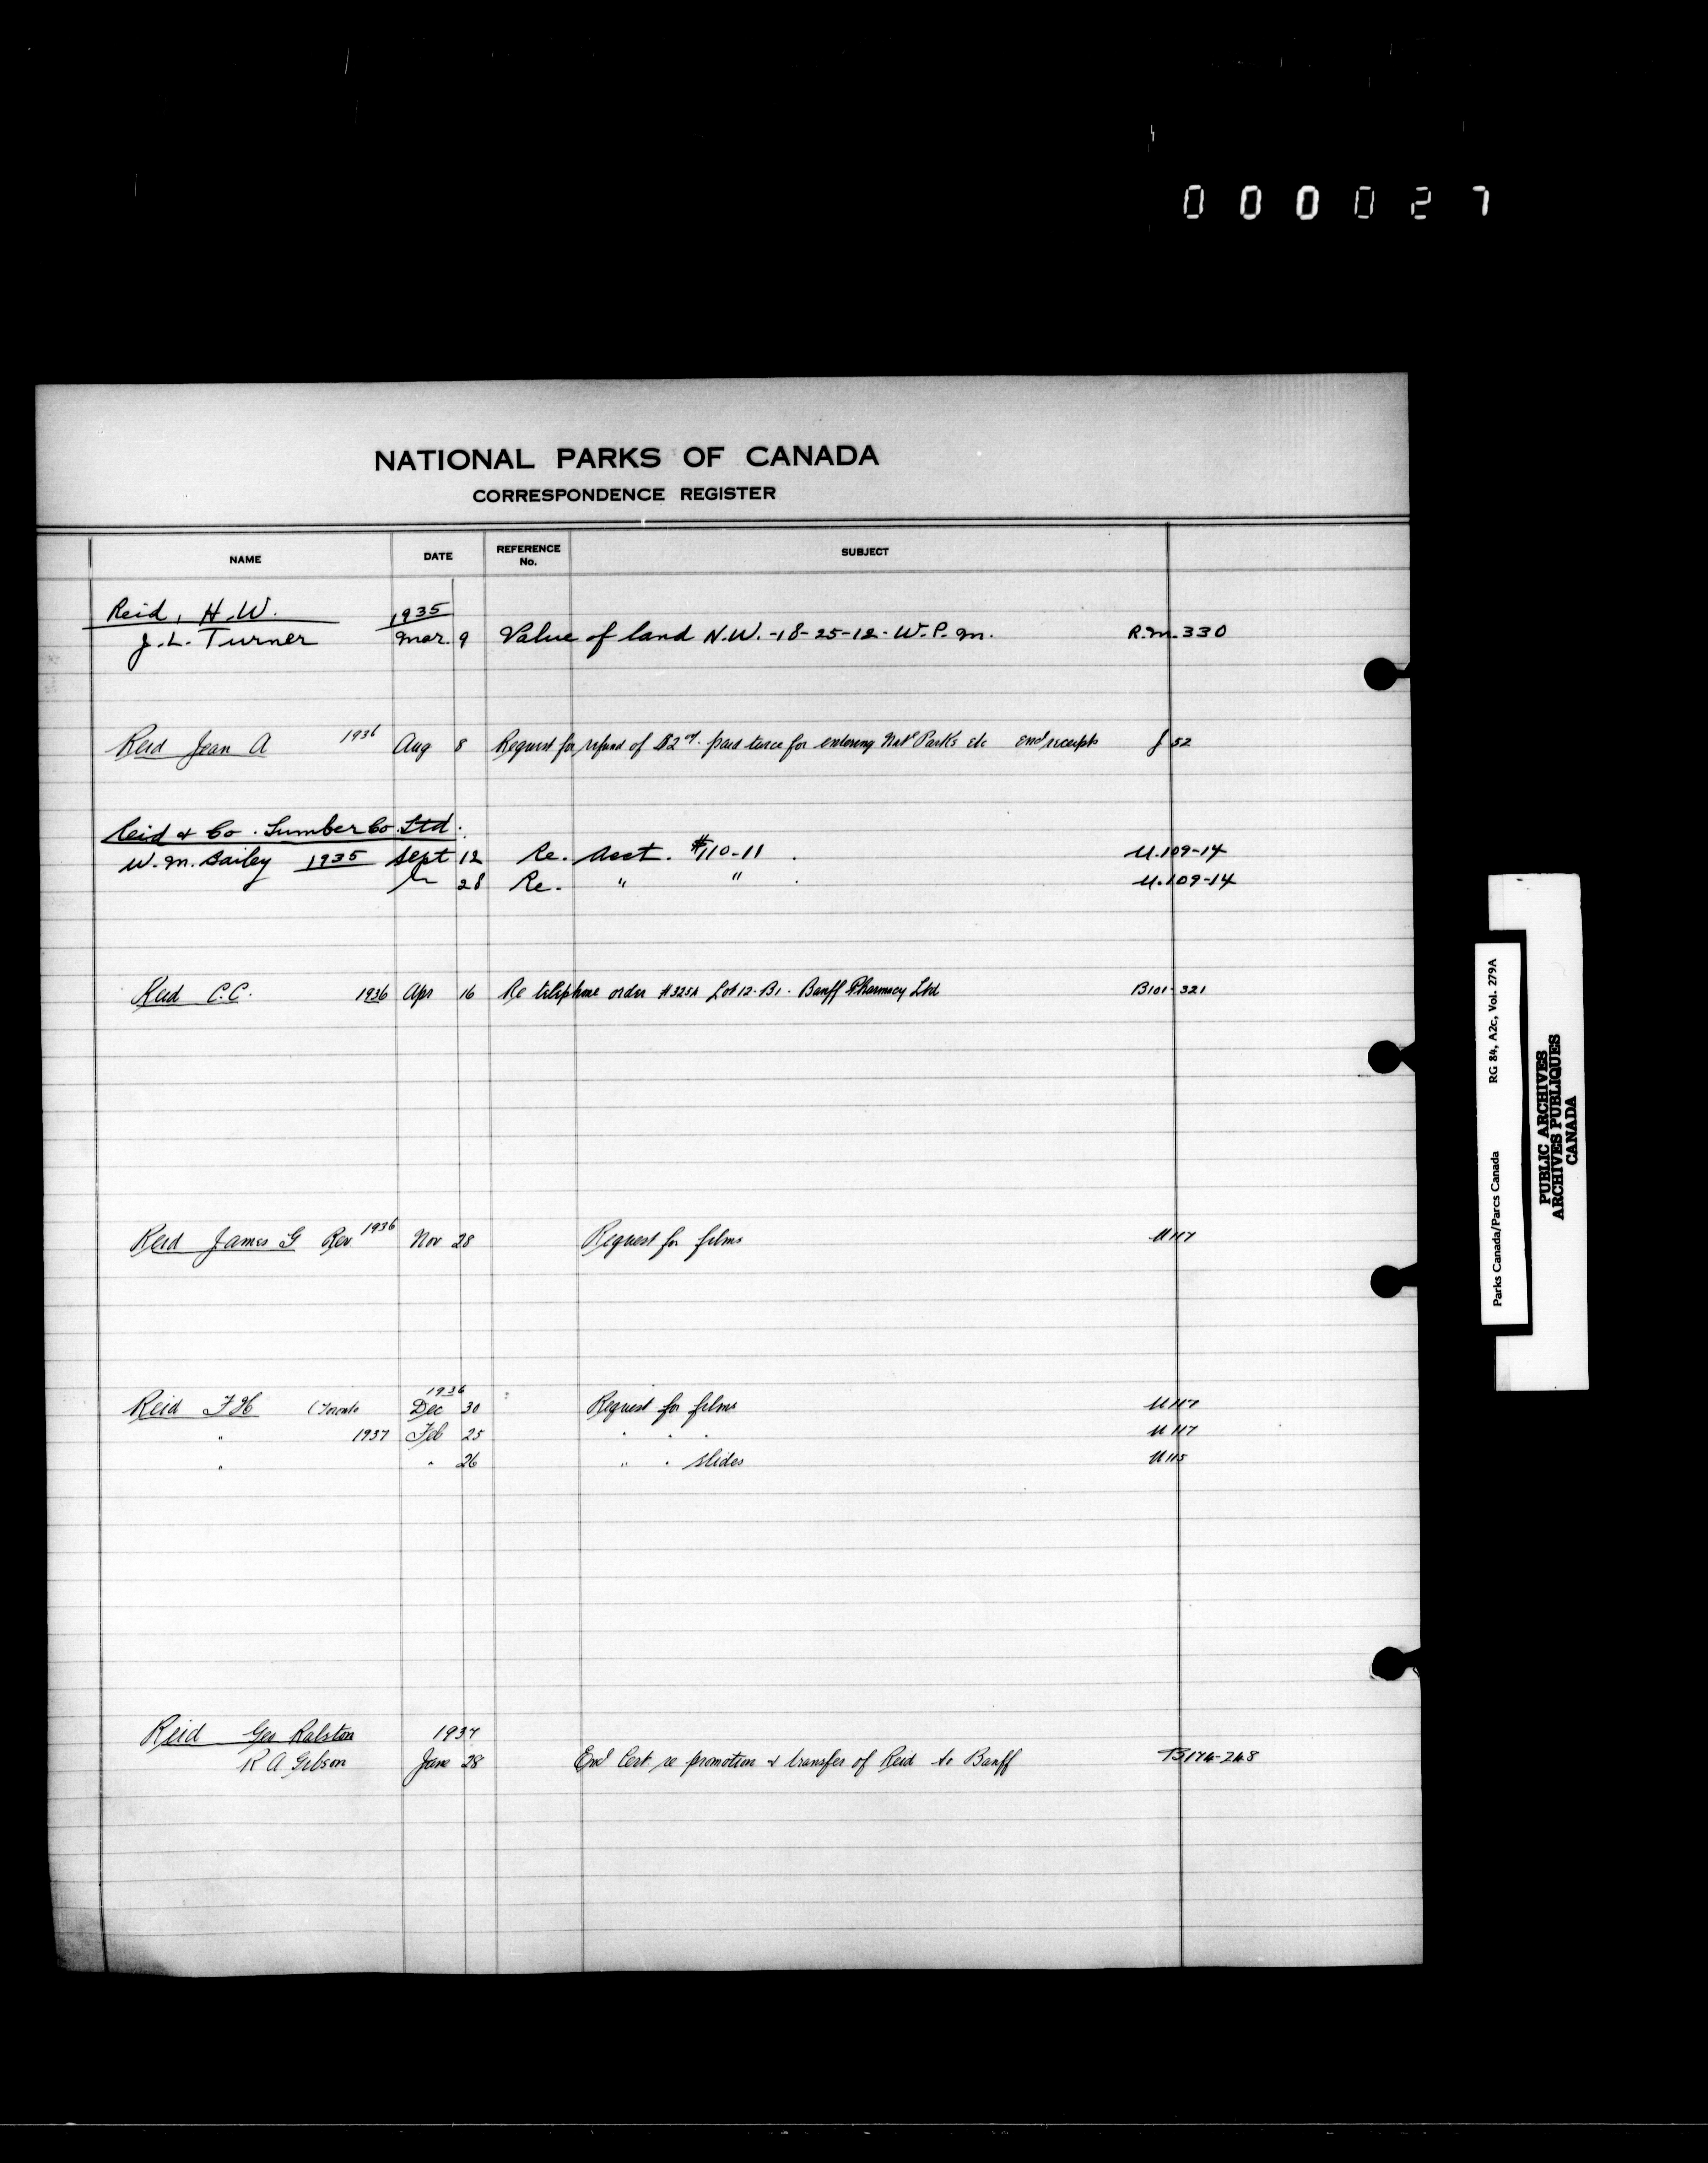 000027
NATIONAL PARKS OF CANADA
CORRESPONDENCE REGISTER
NAME DATE REFERENCE No. SUBJECT
Reid, H.W. 1935
J.L. Turner Mar. 9 Value of land N.W.-18-25-12-W.P.M. R.M.330
Reid Jean A 1936 Aug 8 Request for refund of $2 paid twice for entering Natl Parks etc Encl receipts J 52
Reid & Co. Lumber Co. Ltd.
W.M. Bailey 1935 Sept 12 Re. Acct. $110-11 U.109-14
28 Re. " " U.109-14
Reid C.C. 1936 Apr 16 Re telephone order #325A Lot 12-B1- Banff Pharmacy Ltd B101-321
Reid James G Rev 1936 Nov 28 Request for films U117
1936
Reid F H (Toronto Dec 30 Request for films U117
" 1937 Feb 25 " " " U117
" " 26 " " slides U115
Reid Geo Ralston 1937
R A Gibson June 28 Encl Cert re promotion & transfer of Reid to Banff B174-248
Parks Canada/Parcs Canada RG 84, A2c, Vol. 279A
PUBLIC ARCHIVES
ARCHIVES PUBLIQUES
CANADA